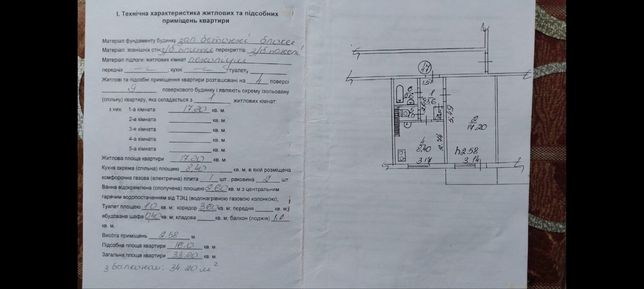 I. Технічна характеристика житлових та підсобних
приміщень квартири
Матеріал фундаменту будинку зал бетонні блоки
Матеріал: зовнішніх стін з/б панелі перекриттів з/б панелі
Матеріал підлоги: житлових кімнат лінолеум
передня — кухні — туалету
Житлові та підсобні приміщення квартири розташовані на 4 поверсі
9 поверхового будинку і являють окрему ізольовану
(спільну) квартиру, яка складається з 1 житлових кімнат
з них 1-а кімната 17.20 кв. м
2-а кімната кв. м
3-я кімната кв. м
4-а кімната кв. м
5-а кімната кв. м
Житлова площа квартири 17.20 кв. м
Кухня окрема (спільна) площею 8,40 кв. м, в якій розміщена
комфорочна газова (електрична) плита 1 шт. раковина 2 шт
Ванна відокремлена (сполучена) площею 2.60 кв. м з центральним
гарячим водопостачанням від ТЭЦ (водонагрівною газовою колонкою),
Туалет площею 1.0 кв. м; коридор кв. м; передня кв. м;
вбудована шафа 0,40 кв. м; кладова кв. м; балкон (лоджія)
кв. м.
Висота приміщень 2.58 м
Підсобна площа квартири кв. м
Загальна площа квартири кв. м
з балконом: 34.20 м²
17.20
h 2.58
8,40
3.14
3.14